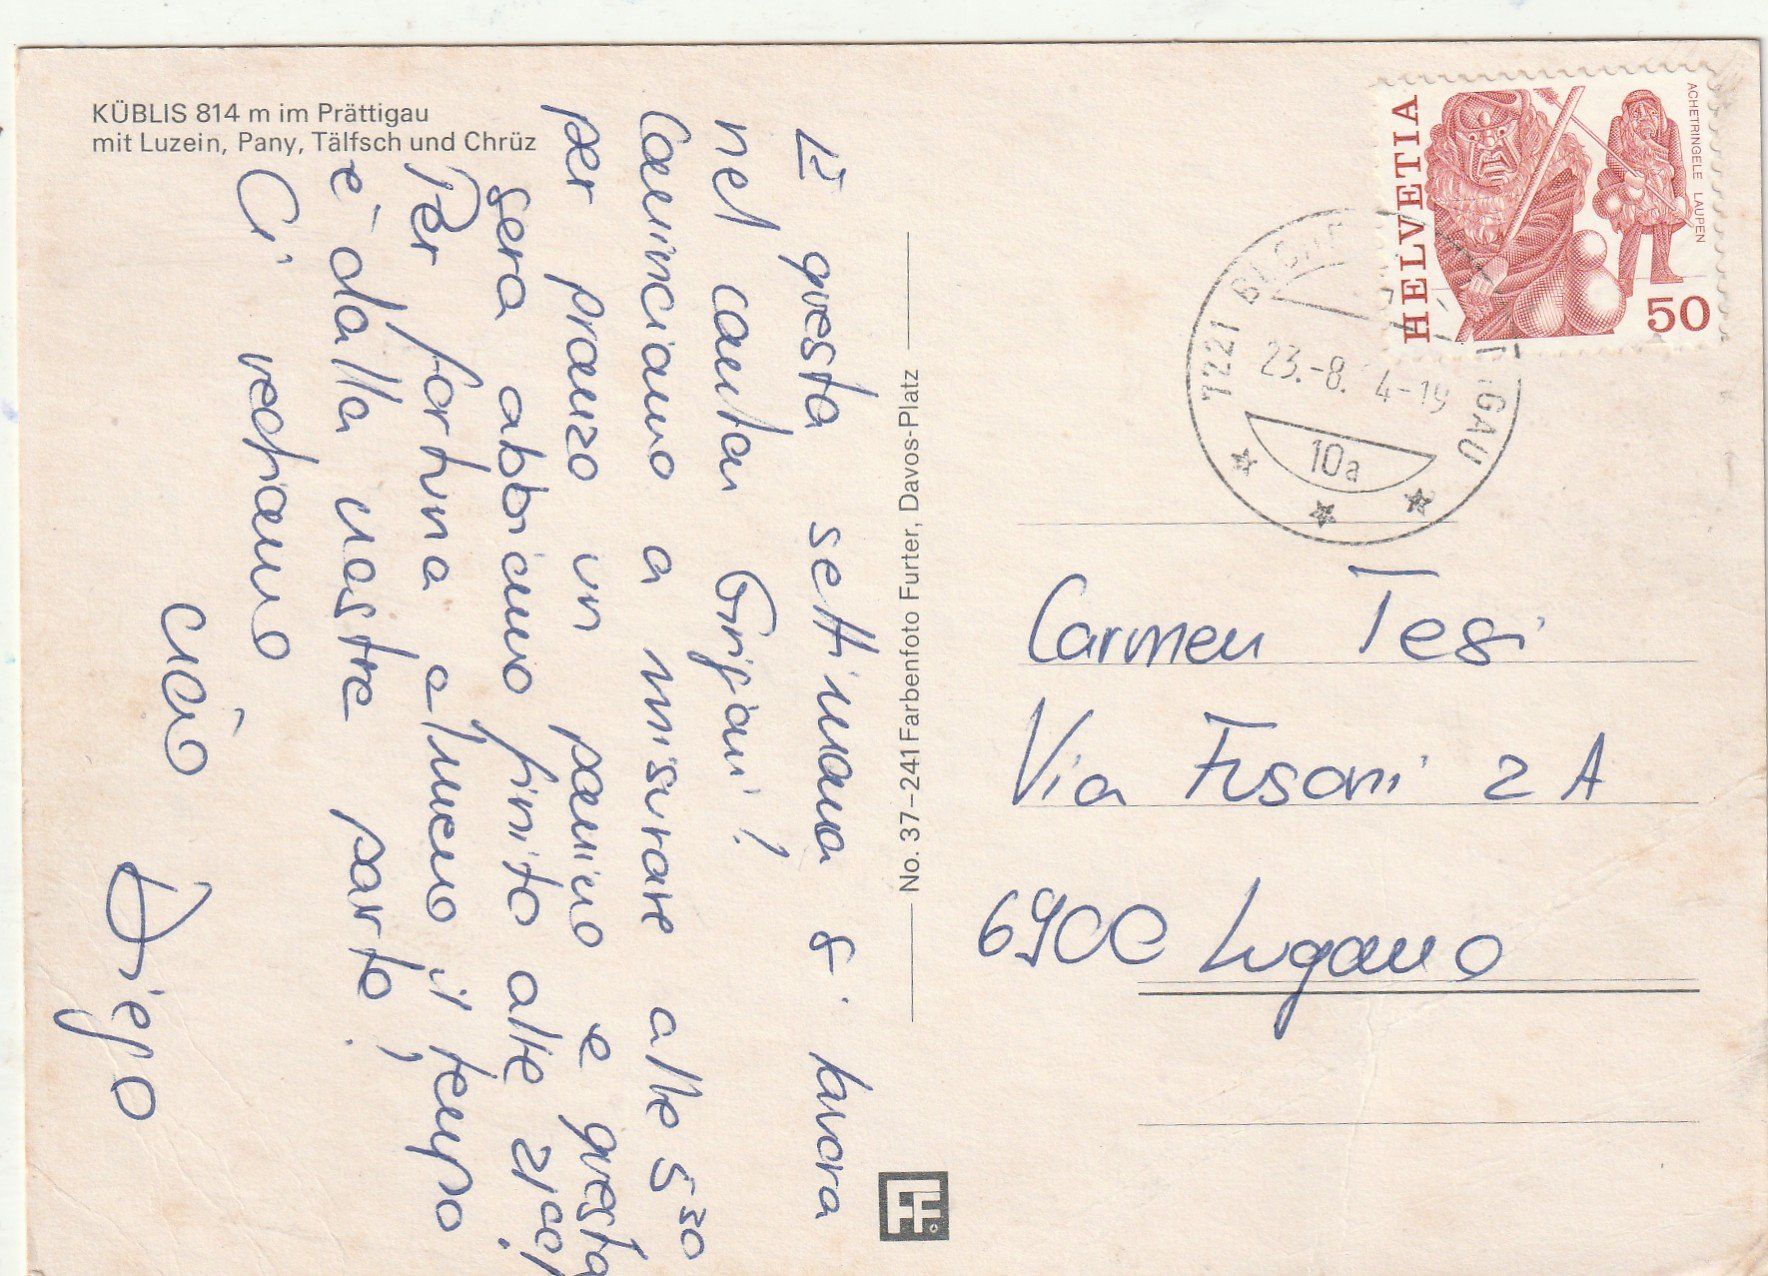 KÜBLIS 814 m im Prättigau
mit Luzein, Pany, Tälfsch und Chrüz
E questa settimana si lavora
nel canton Grigioni!
Cominciamo a misurare alle 5 30
per pranzo un panino e questa
sera abbiamo finito alle 21 00!
Per fortuna almeno il tempo
è dalla nostra parte!
Ci vediamo
ciao
Diego
No. 37-241 Farbenfoto Furter, Davos-Platz
FF
HELVETIA
ACHETRINGELE LAUPEN
50
7221
23.-8. 4-19
10a
Carmen Tesi
Via Fusoni 2 A
6900 Lugano